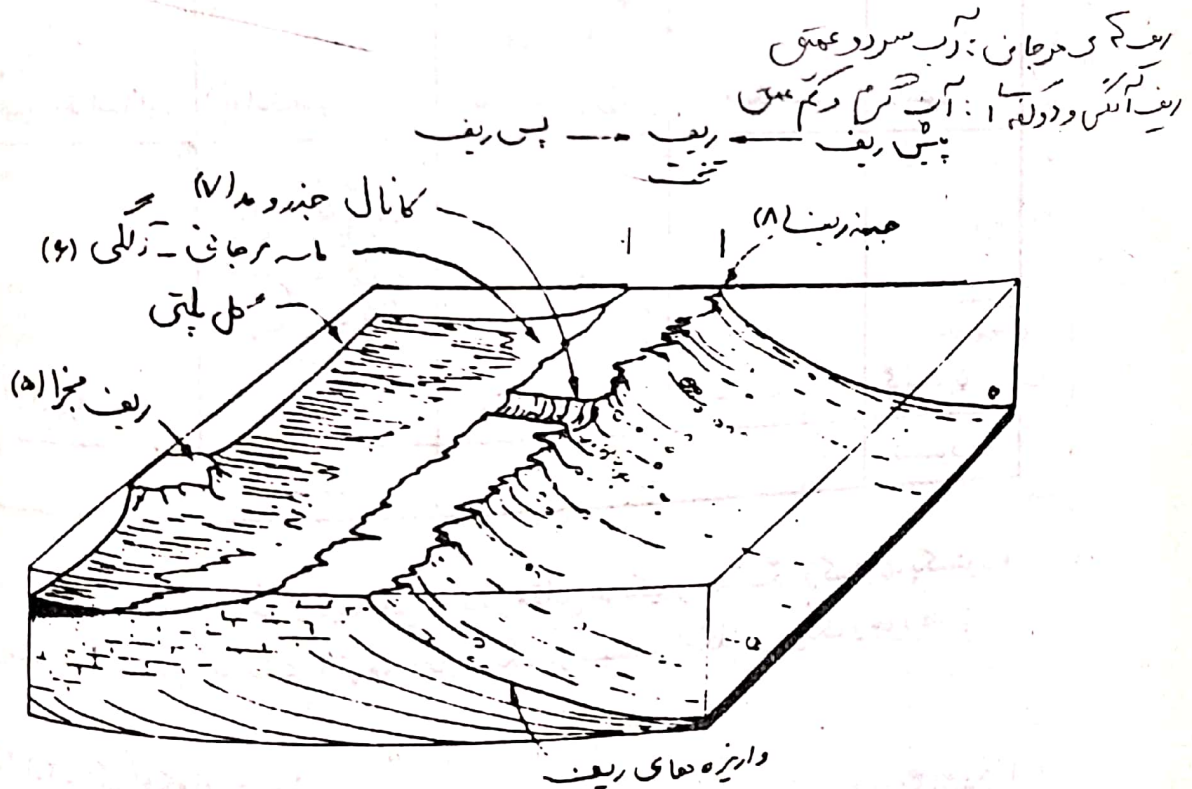 ریف های مرجانی : آب سرد و عمیق
ریف آلگی و دوکفه ا : آب گرم و کم عمق
پیش ریف ← ریف → پس ریف
تخت
جبهه ریف (۸)
کانال جذر و مد (۷)
ماسه مرجانی - آلگی (۶)
گل پلتی
ریف مجزا (۵)
واریزه های ریف